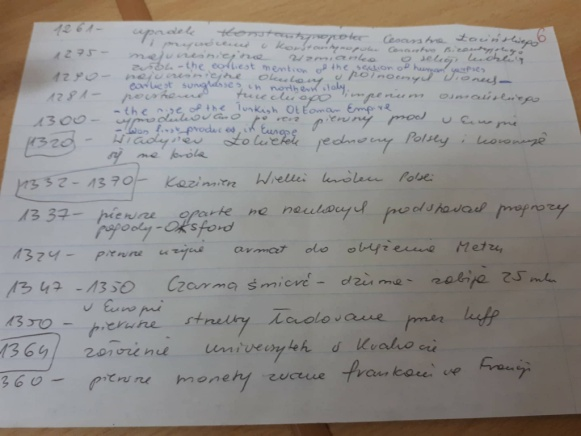 6
1261 - upadek Konstantynopola Cesarstwa Łacińskiego
i przywrócenie w Konstantynopolu Cesarstwa Bizantyjskiego
1275 - najwcześniejsza wzmianka o sekcji ludzkiej
zwłok - the earliest mention of the
1290 - najwcześniejsze okulary w północnych Włoszech -
earliest sunglasses in northern Italy
1281 - powstanie tureckiego imperium osmańskiego
- the rise of the Turkish Ottoman Empire
1300 - wyprodukowano po raz pierwszy proch w Europie
- first produced in Europe
1320 - Władysław Łokietek jednoczy Polskę i koronuje
się na króla
1332 - 1370 - Kazimierz Wielki królem Polski
1337 - pierwsze oparte na naukowych podstawach prognozy
pogody - Oksford
1324 - pierwsze użycie armat do oblężenia Metzu
1347 - 1350 Czarna śmierć - dżuma - zabija 25 mln
w Europie
1350 - pierwsze strzelby ładowane przez lufę
1364 założenie uniwersytetu w Krakowie
1360 - pierwsze monety zwane frankami we Francji